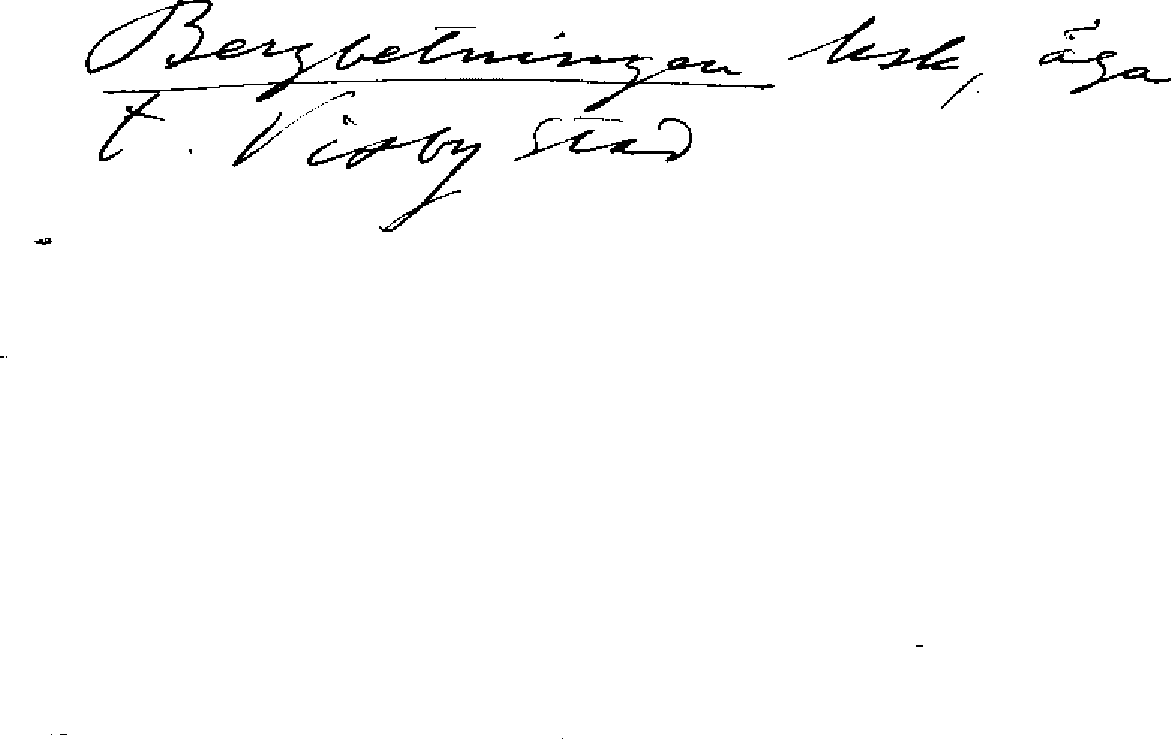 Bergbetningen ksk, äga
t. Visby stad